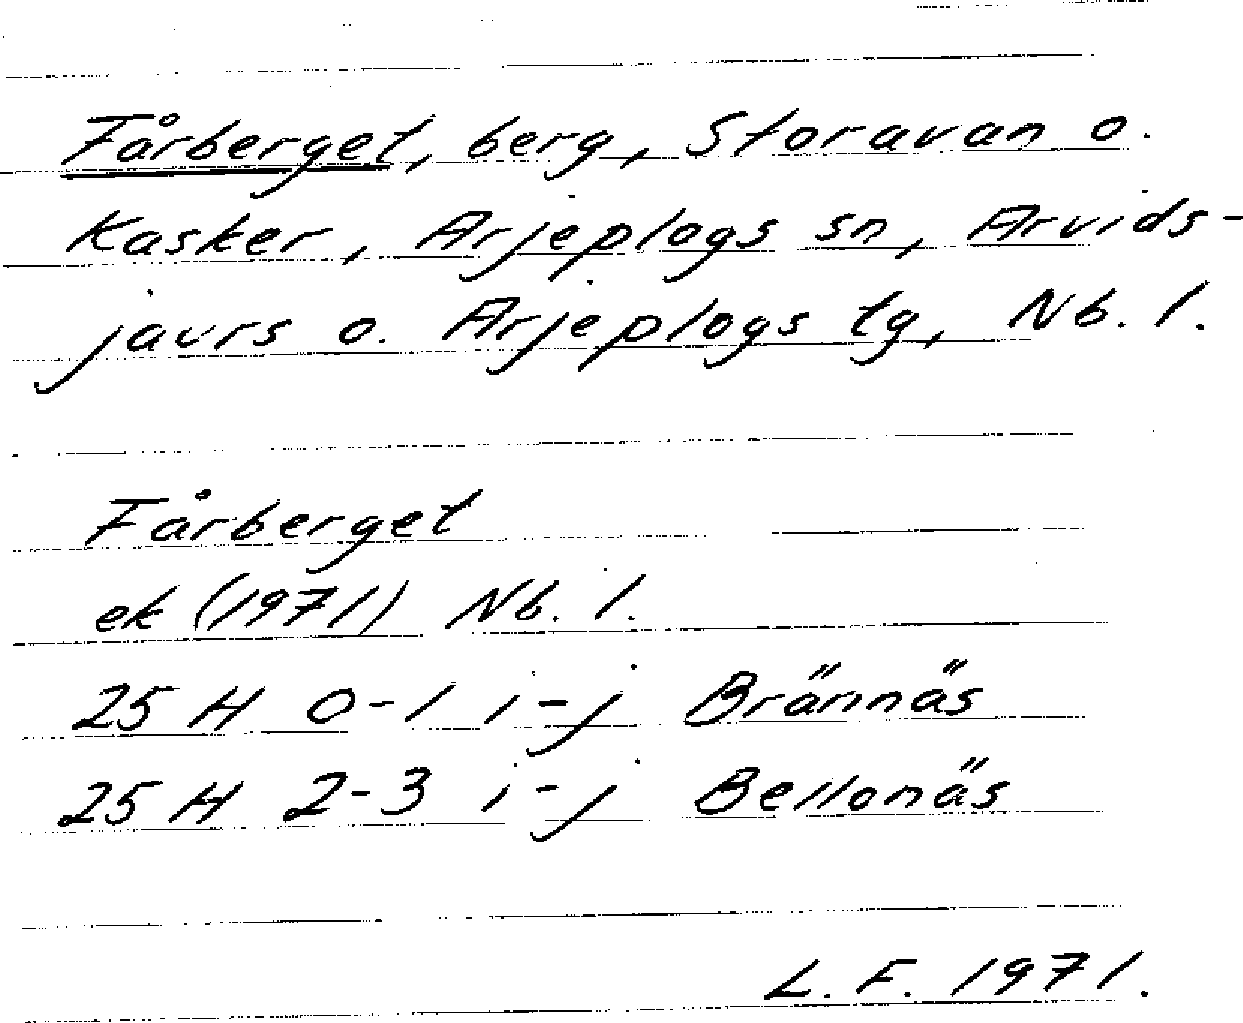 Fårberget, berg, Storavan o.
Kasker, Arjeplogs sn, Arvids-
jaurs o. Arjeplogs tg, Nb. l.
Fårberget
ek (1971) Nb. l.
25 H 0-1 i-j Brännäs
25 H 2-3 i-j Bellonäs
L. F. 1971.